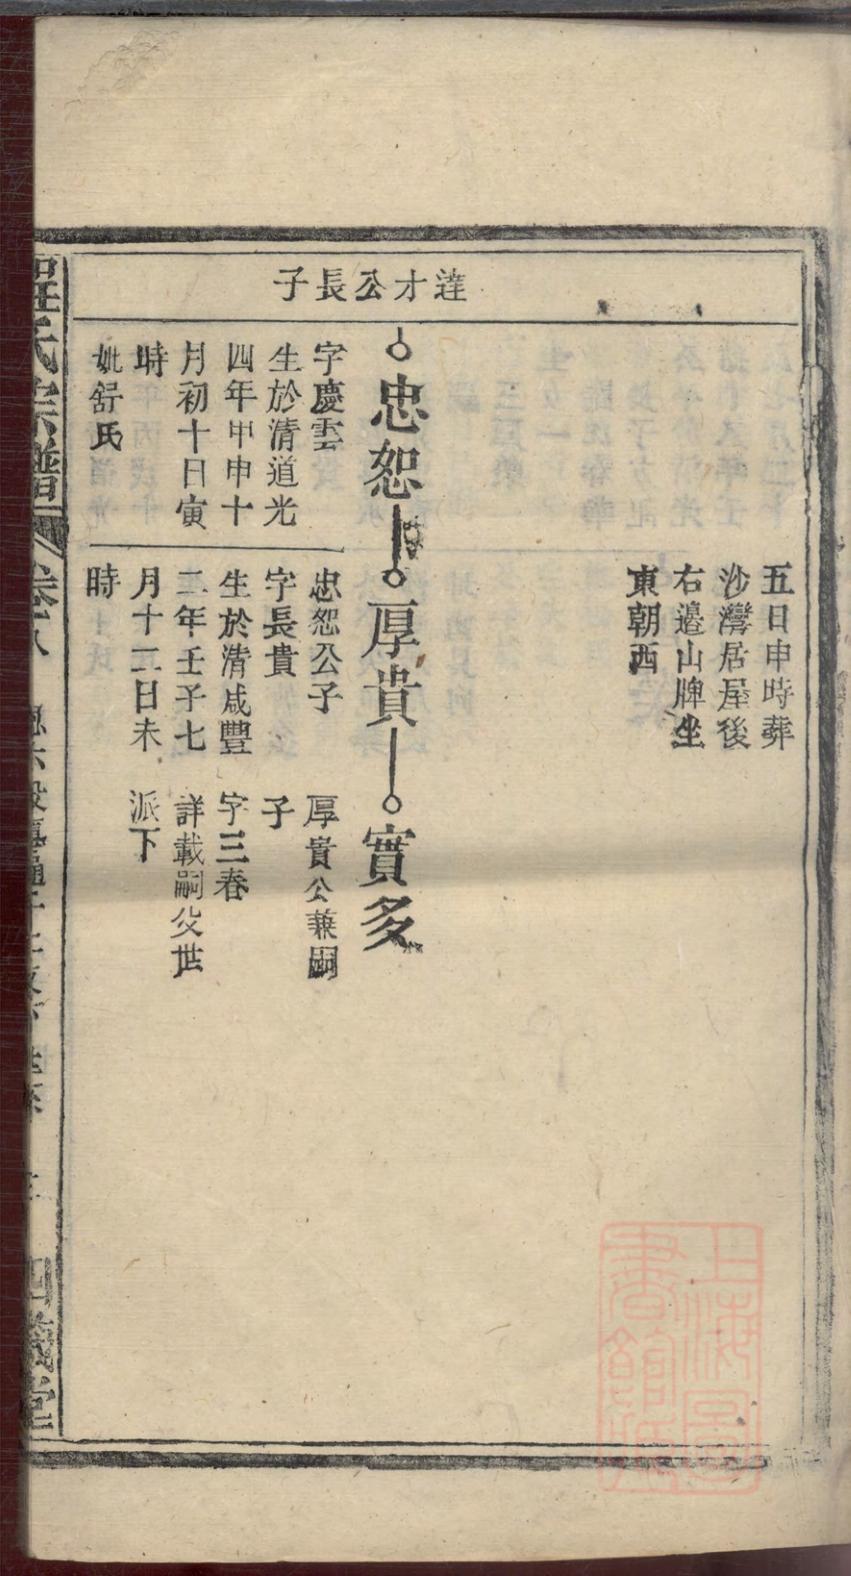 達才公長子
五日申時葬
沙灣居屋後
右邉山牌坐
東朝西
忠恕
厚貴
實多
字慶雲
生於清道光
四年甲申十
月初十日寅
時
妣舒氏
忠恕公子
字長貴
生於清咸豐
二年壬子七
月十二日未
時
厚貴公兼嗣
子
字三春
詳載嗣父世
派下
氏宗譜
四義堂
上海圖
書館藏